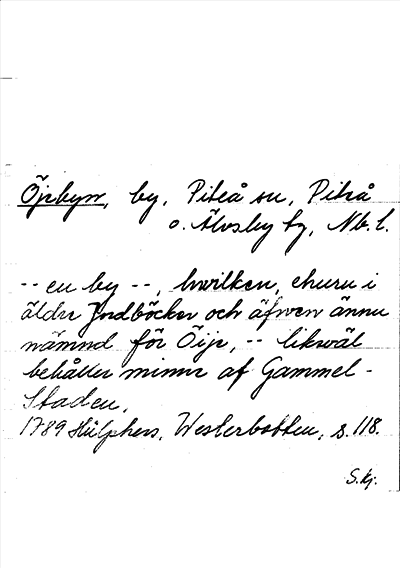 Öjebyn, by, Piteå sn, Piteå
o. Älvsby tg, Nb. l.
-- en by --, hwilken, ehuru i
äldre Jordböcker och äfwen ännu
nämnd för Öije, -- likwäl
behåller minne af Gammel-
Staden,
1789 Hülphers, Westerbotten, s. 118.
S.kj.